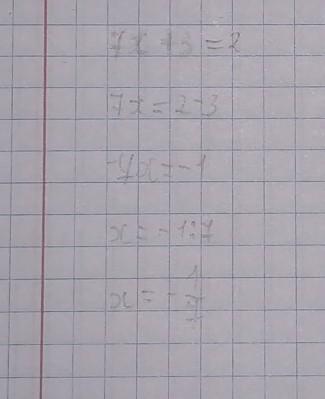 7x + 3 = 2
7x = 2 - 3
7x = -1
x = -1:7
x = -\frac{1}{7}